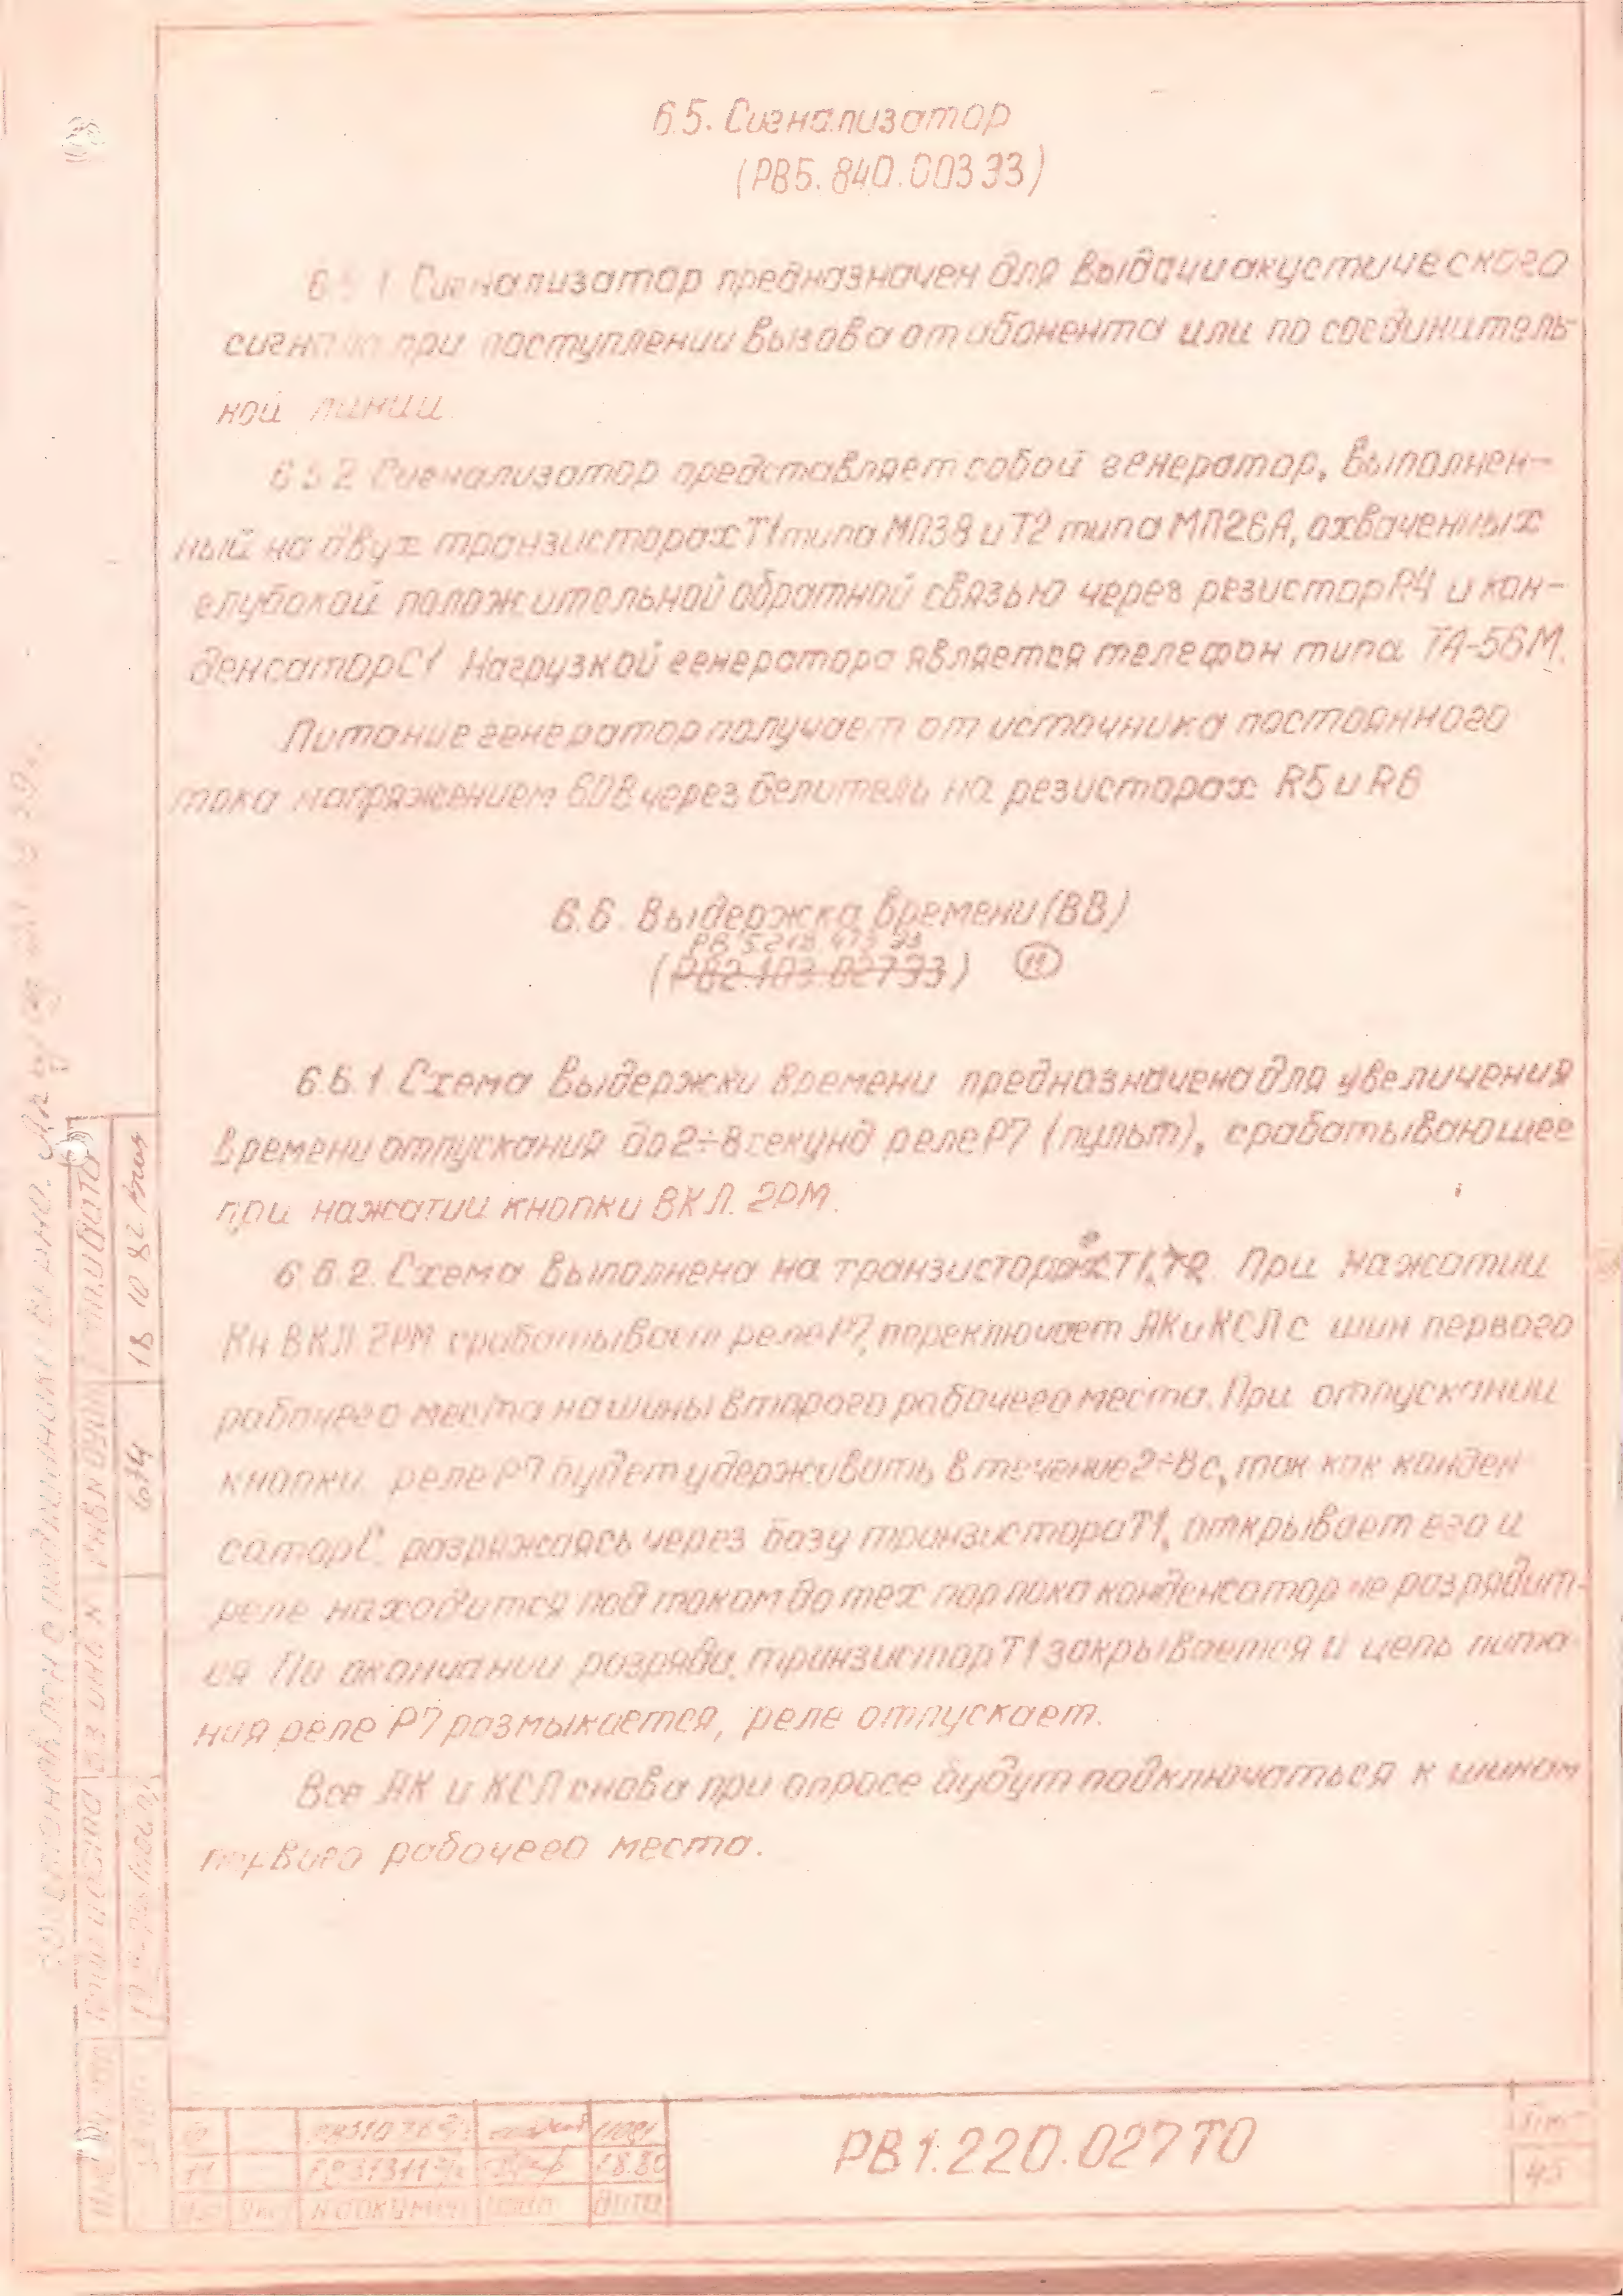 6.5. Сигнализатор
(РВ5.840.003 ЭЗ)
6.5.1 Сигнализатор предназначен для выдачи акустического
сигнала при поступлении вызова от абонента или по соединитель-
ной линии.
6.5.2 Сигнализатор представляет собой генератор, выполнен-
ный на двух транзисторах Т1 типа МП38 и Т2 типа МП26А, охваченных
глубокой положительной обратной связью через резистор R4 и кон-
денсатор С1 Нагрузкой генератора является телефон типа ТА-56М.
Питание генератор получает от источника постоянного
тока напряжением 60В через делитель на резисторах R5 и R6
6.6. Выдержка времени (ВВ)
РВ 5.218.473 ЭЗ
(РВ2.103.027ЭЗ) 11
6.6.1 Схема выдержки времени предназначена для увеличения
времени отпускания до 2÷8 секунд реле Р7 (пульт), срабатывающее
при нажатии кнопки ВКЛ. 2РМ.
6.6.2. Схема выполнена на транзисторе Т1, Т2. При нажатии
Кн ВКЛ 2РМ срабатывает реле Р7, переключает АК и КСЛ с шин первого
рабочего места на шины второго рабочего места. При отпускании
кнопки реле Р7 будет удерживать в течение 2÷8с, так как конден
сатор С, разряжаясь через базу транзистора Т1, открывает его и
реле находится под током до тех пор пока конденсатор не разрядит-
ся По окончании разряда, транзистор Т1 закрывается и цепь пита
ния реле Р7 размыкается, реле отпускает.
Все АК и КСЛ снова при опросе будут подключаться к шинам
первого рабочего места.
18 10 82
674
11
18.80
№ докумен
Дата
РВ1.220.027ТО
Лист
45